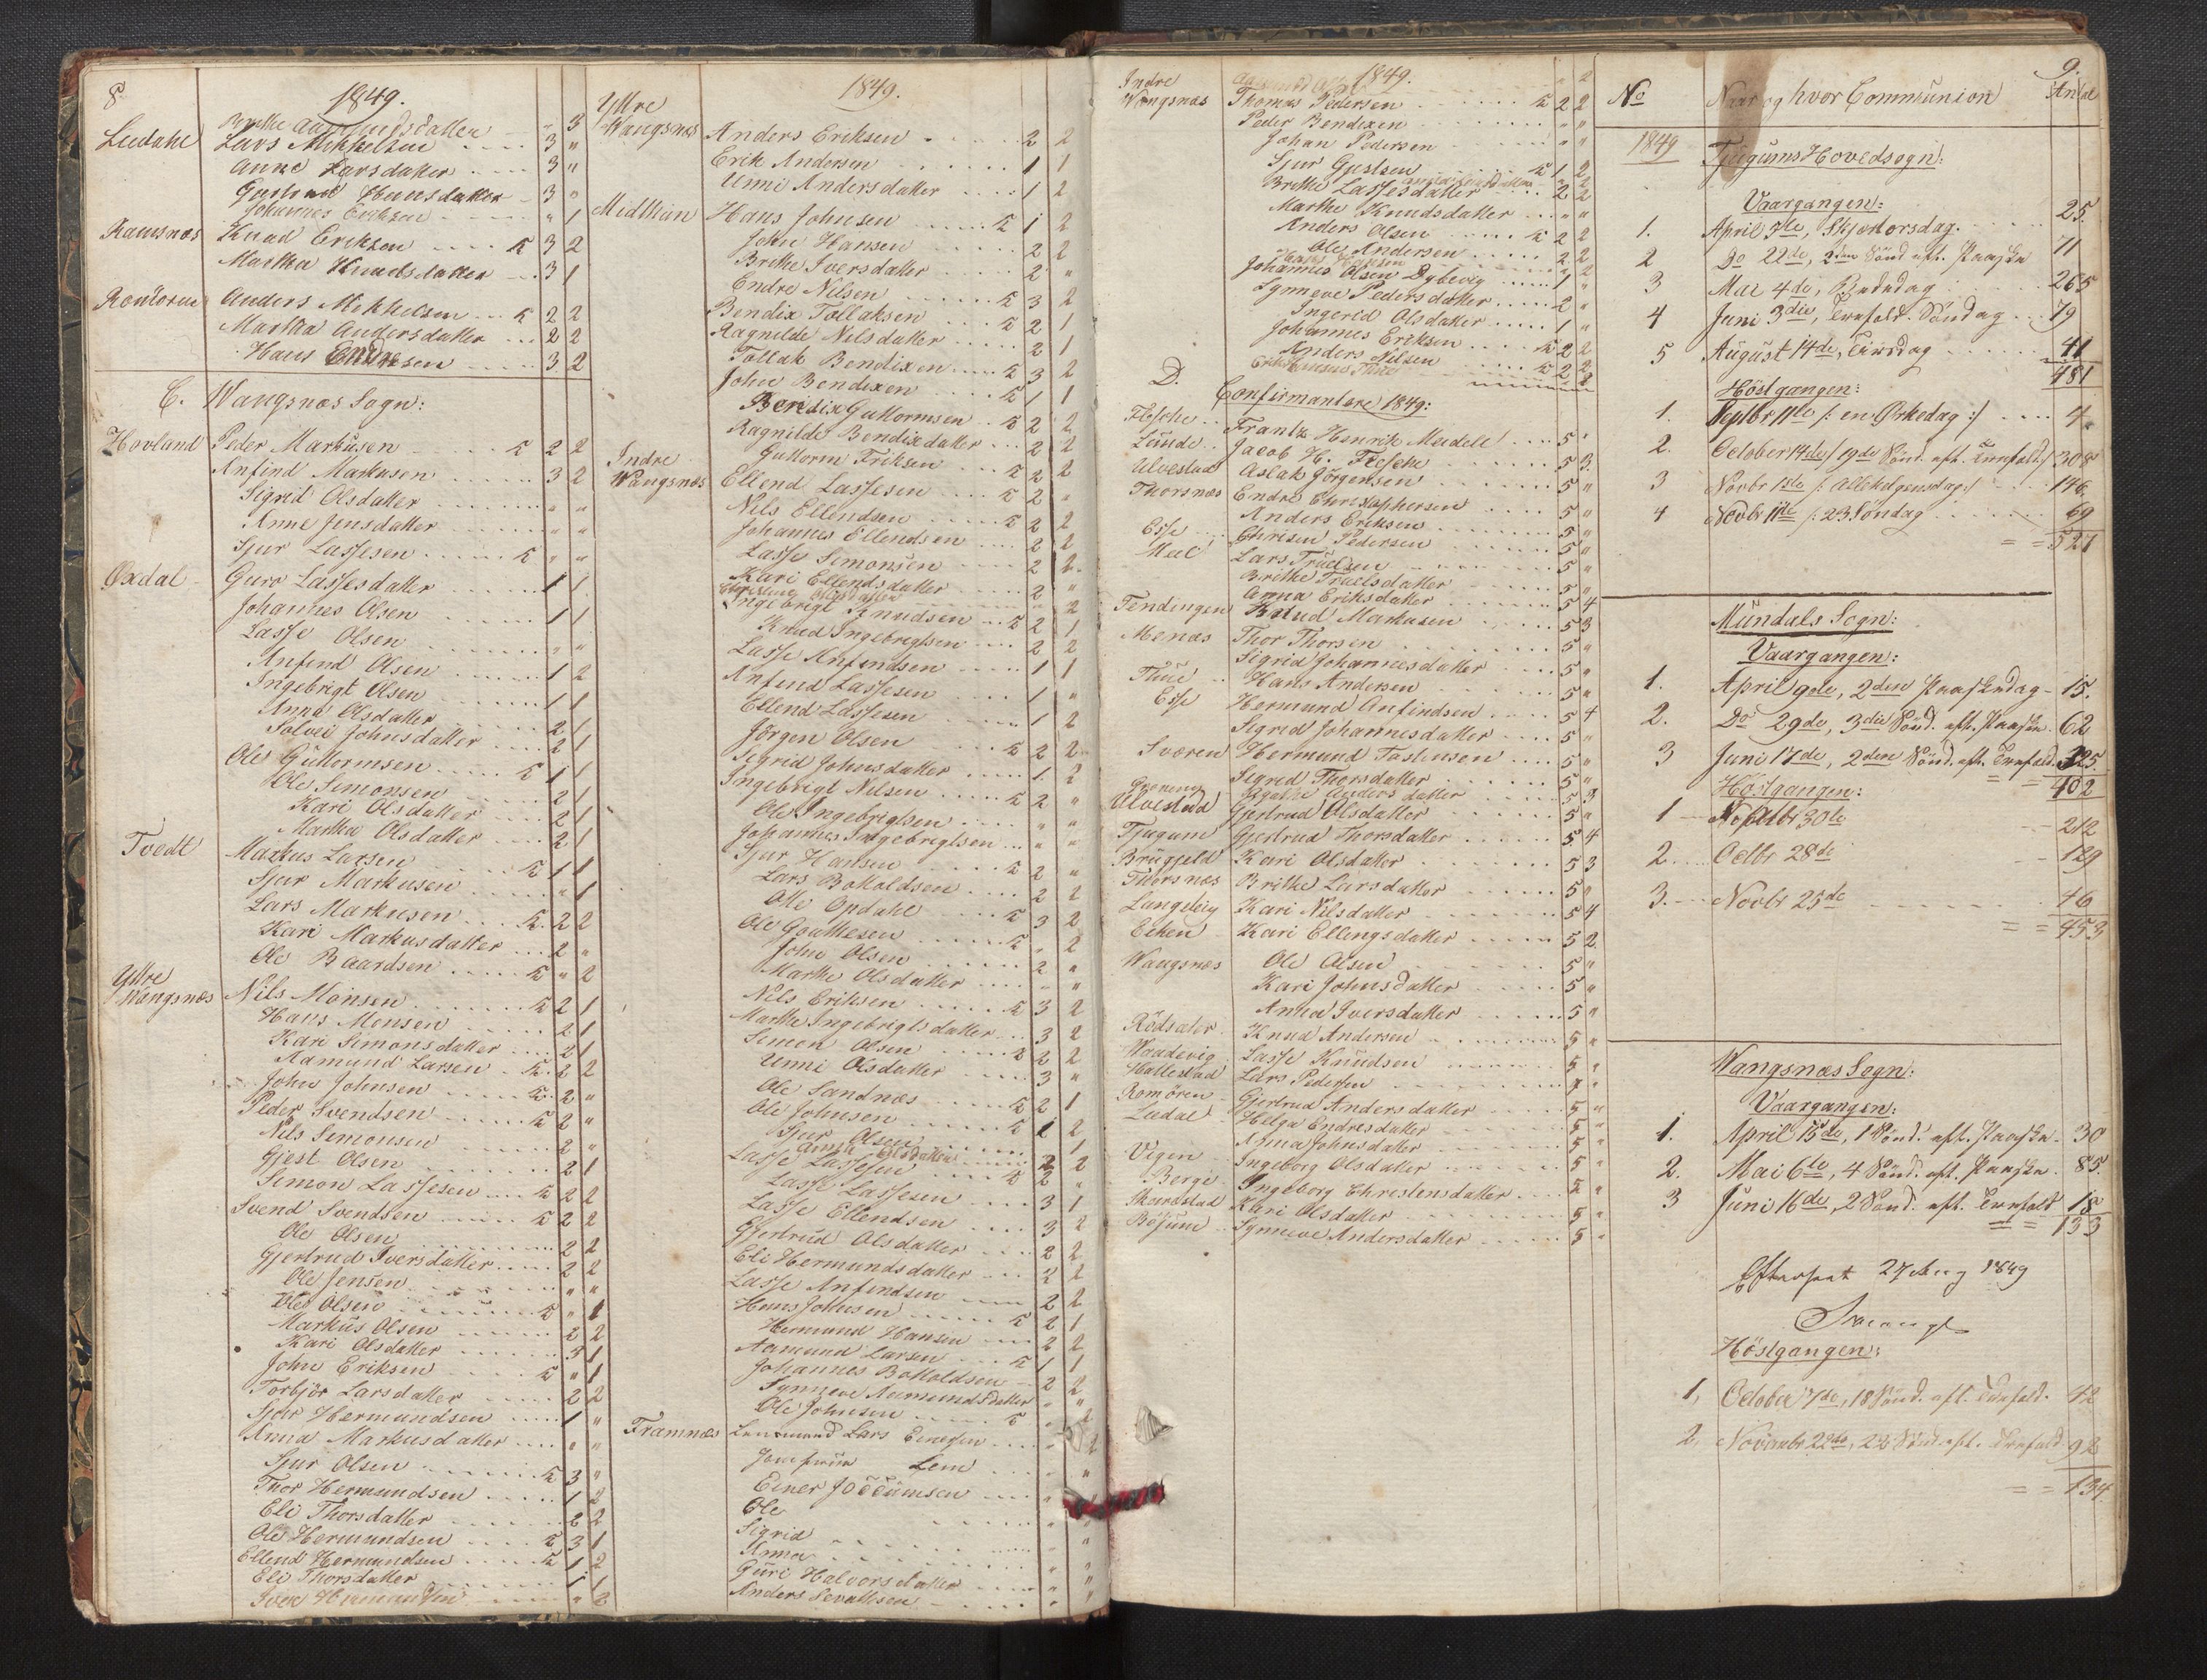 8
1849.
Brithe Aamundsdatter - " 3
Leedahl Lars Mikkelsen .... 3 "
Anne Larsdatter ... 3 "
Gjertrud Hansdatter - 3 "
Johannes Eriksen - " 1
Ramsnæs Knud Eriksen .... k 3 2
Martha Knudsdatter ... 3 1
Romören Anders Mikkelsen ... k 2 2
Martha Andersdatter ... 2 2
Hans Endresen ..... 3 2
C. Wangsnæs Sogn:
Hovland Peder Markusen ..... k 2 2
Anfind Markusen ...... 3 2
Sigrid Olsdatter ........ " "
Anne Jensdatter ....... " "
Sjur Lassesen ...... k " "
Oxdal Guro Lassesdatter ...... 1 1
Johannes Olsen ...... 1 1
Lasse Olsen ........ " "
Anfind Olsen ....... 1 2
Ingebrigt Olsen ...... 1 1
Anna Olsdatter ....... 2 1
Solvei Johnsdatter .... 2 1
Ole Guttormsen ..... k 1 1
Ole Simonsen ....... 2 1
Kari Olsdatter .... 2 1
Martha Olsdatter .... 2 1
Tvedt Markus Larsen .... k 1 1
Sjur Markusen ...... " 1
Lars Markusen .... k. 2 2
Kari Markusdatter ... 2 "
Ole Baardsen ..... k " 2
Yttre Wangsnæs Nils Monsen ....... k 2 1
Hans Monsen ...... 2 1
Kari Simonsdatter .... 2 1
Aamund Larsen .. k. 2 2
John Johnsen ..... k. 2 "
Peder Svendsen ..... k 2 "
Nils Simonsen ...... 2 "
Gjest Olsen ........ 2 1
Simon Lassesen .... k 2 2
Svend Svendsen ..... k 2 2
Ole Olsen ........ 2 2
Gjertrud Iversdatter .... 2 2
Ole Jensen ........ " "
Ole Olsen ....... k " 1
Markus Olsen ....... 2 2
Kari Olsdatter ....... 3 1
John Eriksen ..... k " 1
Torbjör Larsdatter ..... 2 2
Sjur Hermundsen ..... 1 "
Anna Markusdatter .... " "
Sjur Olsen ........ k 3 "
Thor Hermundsen ..... 1 2
Eli Thorsdatter ...... 2 2
Ole Hermundsen ..... k 3 1
Ellend Hermundsen .... k 1 2
Eli Thorsdatter ...... 1 1
Iver Hermundsen ..... " 2
1849.
Yttre Wangsnæs Anders Eriksen ...... 2 2
Erik Andersen ...... 1 1
Unni Andersdatter .... 1 2
Midtlian Hans Johnsen ..... k 1 2
John Hansen ...... 2 2
Brithe Iversdatter ..... 2 "
Endre Nilsen ...... k 3 2
Bendix Tollaksen .... k 2 1
Ragnilde Nilsdatter ..... 2 1
Tollak Bendixen ..... k 3 2
John Bendixen ..... k 1 1
Bendix Guttormsen .. k 2 2
Ragnilde Bendixdatter ... 2 2
Guttorm Eriksen .... k 2 2
Indre Wangsnæs Ellend Lassesen .... k 2 "
Nils Ellendsen ..... k 2 2
Johannes Ellendsen .... 2 2
Lasse Simonsen ..... 2 2.
Kari Ellendsdatter ..... 2 "
Christine Olesdatter ..... " 2
Ingebrigt Knudsen ... k 2 1
Knud Ingebrigtsen .... 2 2
Lasse Anfindsen ..... 1 1
Anfind Lassesen .... 1 "
Ellend Lassesen ..... 1 2
Jörgen Olsen .... k 2 2
Sigrid Johnsdatter ..... 1 2
Ingebrigt Nilsen ..... k 2 "
Ole Ingebrigtsen ..... " "
Johannes Ingebrigtsen ... " "
Sjur Hansen ...... k 2 "
Lars Botholdsen .... 2 2
Otte Opdahl .... k 3 2
Ole Gouttesen ...... k " 2
John Olsen ....... 2 "
Marthe Olsdatter ..... " "
Nils Eriksen ...... k 3 2
Marthe Ingebrigtsdatter ... 3 2
Simon Olsen ..... k 2 2
Unni Olsdatter ..... 3 "
Ole Sandnæs ..... k 2 1
Ole Johnsen ...... k 1 2
Sjur Olsen ....... " 1
Anna Olsdatter ..... 2 2
Lasse Lassesen ..... k 2 "
Lasse Lassesen ..... 3 1
Lasse Ellendsen .... 3 2
Gjertrud Olsdatter .... 2 2
Eli Hermundsdatter ... 2 2
Lasse Anfindsen .... 2 2
Hans Johnsen ..... k 2 1
Hermund Hansen .... 2 2
Aamund Larsen ... k 1 1
Johannes Botholdsen .. 2 2
Synneve Aamundsdatter " "
Ole Johnsen ..... k " 2
Framnæs Lensmand Lars Einersen .... " 2
Jomfrue Lem .... " "
Einer Joccumsen .... " "
Ole ......... " "
Sigrid ........ " "
Anna ........ " "
Guri Halvorsdatter .... " "
Anders Sevaltsen ..... " "
1849.
Indre Wangsnæs Thomas Pedersen ..... k 2 2
Peder Bendixen ....... " "
Johan Pedersen ...... " "
Sjur Gjestsen ...... k 1 2
Brithe Lassesdatter .... 2 2
Marthe Knudsdatter ... " "
Anders Olsen ..... k 2 2
Ole Andersen ..... 2 2
Johannes Olsen Dybevig ..... 1 "
Synneve Pedersdatter .... 2 "
Ingerid Olsdatter ..... 1 "
Johannes Eriksen .... k 2 2
Anders Nilsen ..... k 2 2
D. Confirmantere 1849:
Flesche .. Frantz Henrik Meidell .... 5 "
Lunde .. Jacob H. Flesche ...... 5 3.
Ulvestad Aslak Jörgensen ...... 5 "
Thorsnæs Endre Christophersen .... 5 "
Anders Eriksen ...... 5 "
Esse ... Chrisen Pedersen ...... 5 "
Meel Lars Truelsen ...... 5 "
Brithe Truelsdatter ..... 5 "
Anna Eriksdatter ...... 5 4
Tendingen Knud Markusen ...... 5 3
Menæs Thor Thorsen ........ 5 "
Sigrid Johannesdatter .... 5 "
Thue .. Hans Andersen ...... 5 "
Esse Hermund Anfindsen .... 5 4
Sigrid Johannesdatter .... 5 "
Sværen Hermund Tostensen .... 5 "
Sigrid Thorsdatter ..... 5 "
Grøneng Agathe Andersdatter ..... 5 3
Ulvestad Gjertrud Olsdatter ..... 5 "
Tjugum Gjertrud Thorsdatter ..... 5 4
Brugjeld Kari Olsdatter ....... 5 3
Thorsnæs Brithe Larsdatter ...... 5 "
Langeteig Kari Nilsdatter ...... 5 4
Eihen Kari Ellingsdatter ..... 5 2
Wangsnæs Ole Olsen ...... 5 "
Kari Johnsdatter ..... 5 "
Anna Iversdatter ..... 5 "
Rödsæter Knud Andersen ....... 5 "
Waadevig Lasse Knudsen ..... 5 "
Hallestad Lars Pedersen ....... 5 "
Romören Gjertrud Andersdatter .... 5 "
Ledal Helga Endresdatter ..... 5 "
Anna Johnsdatter ..... 5 "
Vigen .. Ingeborg Olsdatter ..... 5 "
Berge .. Ingeborg Christensdatter .... 5 "
Skardstad Kari Olsdatter ....... 5 "
Bösum .. Synneve Andersdatter ..... 5 "
9.
No Naar og hvor Communion Antal
1849 Tjugums Hovedsogn:
Vaargangen:
1. April 5te, Skjærtorsdag ..... 25.
2 Do 22de, 2den Sönd. eft. Paaske 71
3 Mai 4de, Bededag ..... 265
4 Juni 3die, Trefold. Söndag ... 79
5 August 14de, Tirsdag ...... 41
481
Höstgangen:
1. Septbr 11te /: en Örkedag :/ .... 4
2. October 14de /: 19de Sönd. eft. Trefold :/ 308
3 Novbr 1ste /: Allehelgensdag :/ .... 146
4 Novbr 11te /: 23 Söndag ...... 69
= = 527
Mundals Sogn:
Vaargangen:
1. April 9de, 2den Paaskedag - 15.
2. Do 29de, 3die Sönd. eft. Paaske. 62
3 Juni 17de, 2den Sönd. eft. Trefold. 325
= = 402
Höstgangen:
1 Septbr 30te - - 212
2. Octbr 28de - - 129
3. Novbr 25de ...... 46
= = 453
Wangsnæs Sogn:
Vaargangen:
1. April 15de, 1 Sönd. eft. Paaske. 30
2. Mai 6te, 4 Sönd. eft. Paaske. 85.
3 Juni 16de, 2 Sönd. eft. Trefold 18
= = 133
Efterseet 27 Aug 1849
Höstgangen:
1, October 7de, 18 Sönd. eft. Trefold. 42
2, Novembr 22de, 22 Sönd. eft. Trefold. 92
= = 134.